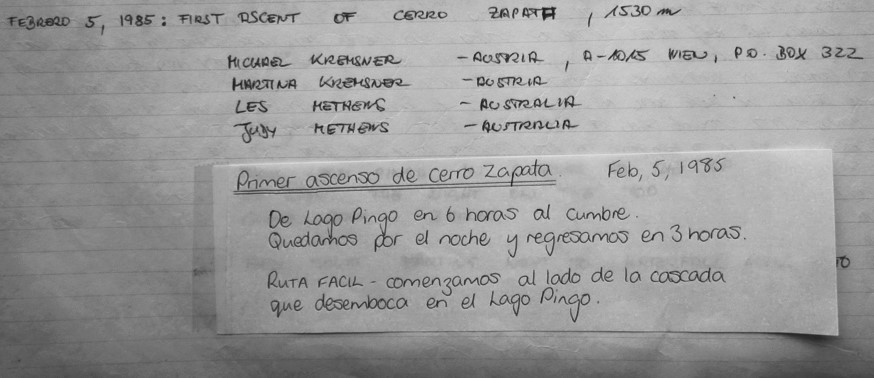 FEBRERO 5, 1985: FIRST ASCENT OF CERRO ZAPATA, 1530 m
MICHAEL KREMSNER - AUSTRIA, A-1015 WIEN, P.O. BOX 322
MARTINA KREMSNER - AUSTRIA
LES METHEWS - AUSTRALIA
JUDY METHEWS - AUSTRALIA
Primer ascenso de cerro Zapata. Feb, 5, 1985
De Lago Pingo en 6 horas al cumbre.
Quedamos por el noche y regresamos en 3 horas.
RUTA FACIL - comenzamos al lado de la cascada
que desemboca en el Lago Pingo.